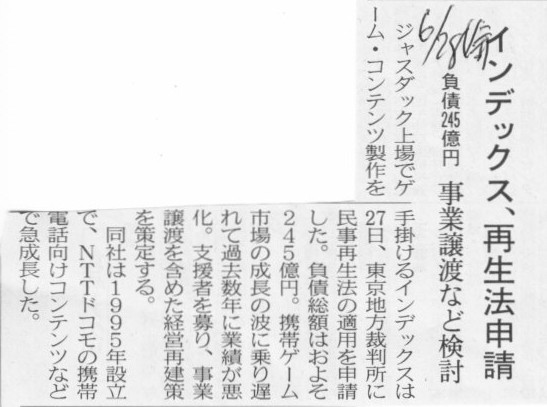 インデックス、再生法申請
負債245億円 事業譲渡など検討
6/28
ジャスダック上場でゲ
ーム・コンテンツ製作を
手掛けるインデックスは
27日、東京地方裁判所に
民事再生法の適用を申請
した。負債総額はおよそ
245億円。携帯ゲーム
市場の成長の波に乗り遅
れて過去数年に業績が悪
化。支援者を募り、事業
譲渡を含めた経営再建策
を策定する。
同社は1995年設立
で、NTTドコモの携帯
電話向けコンテンツなど
で急成長した。